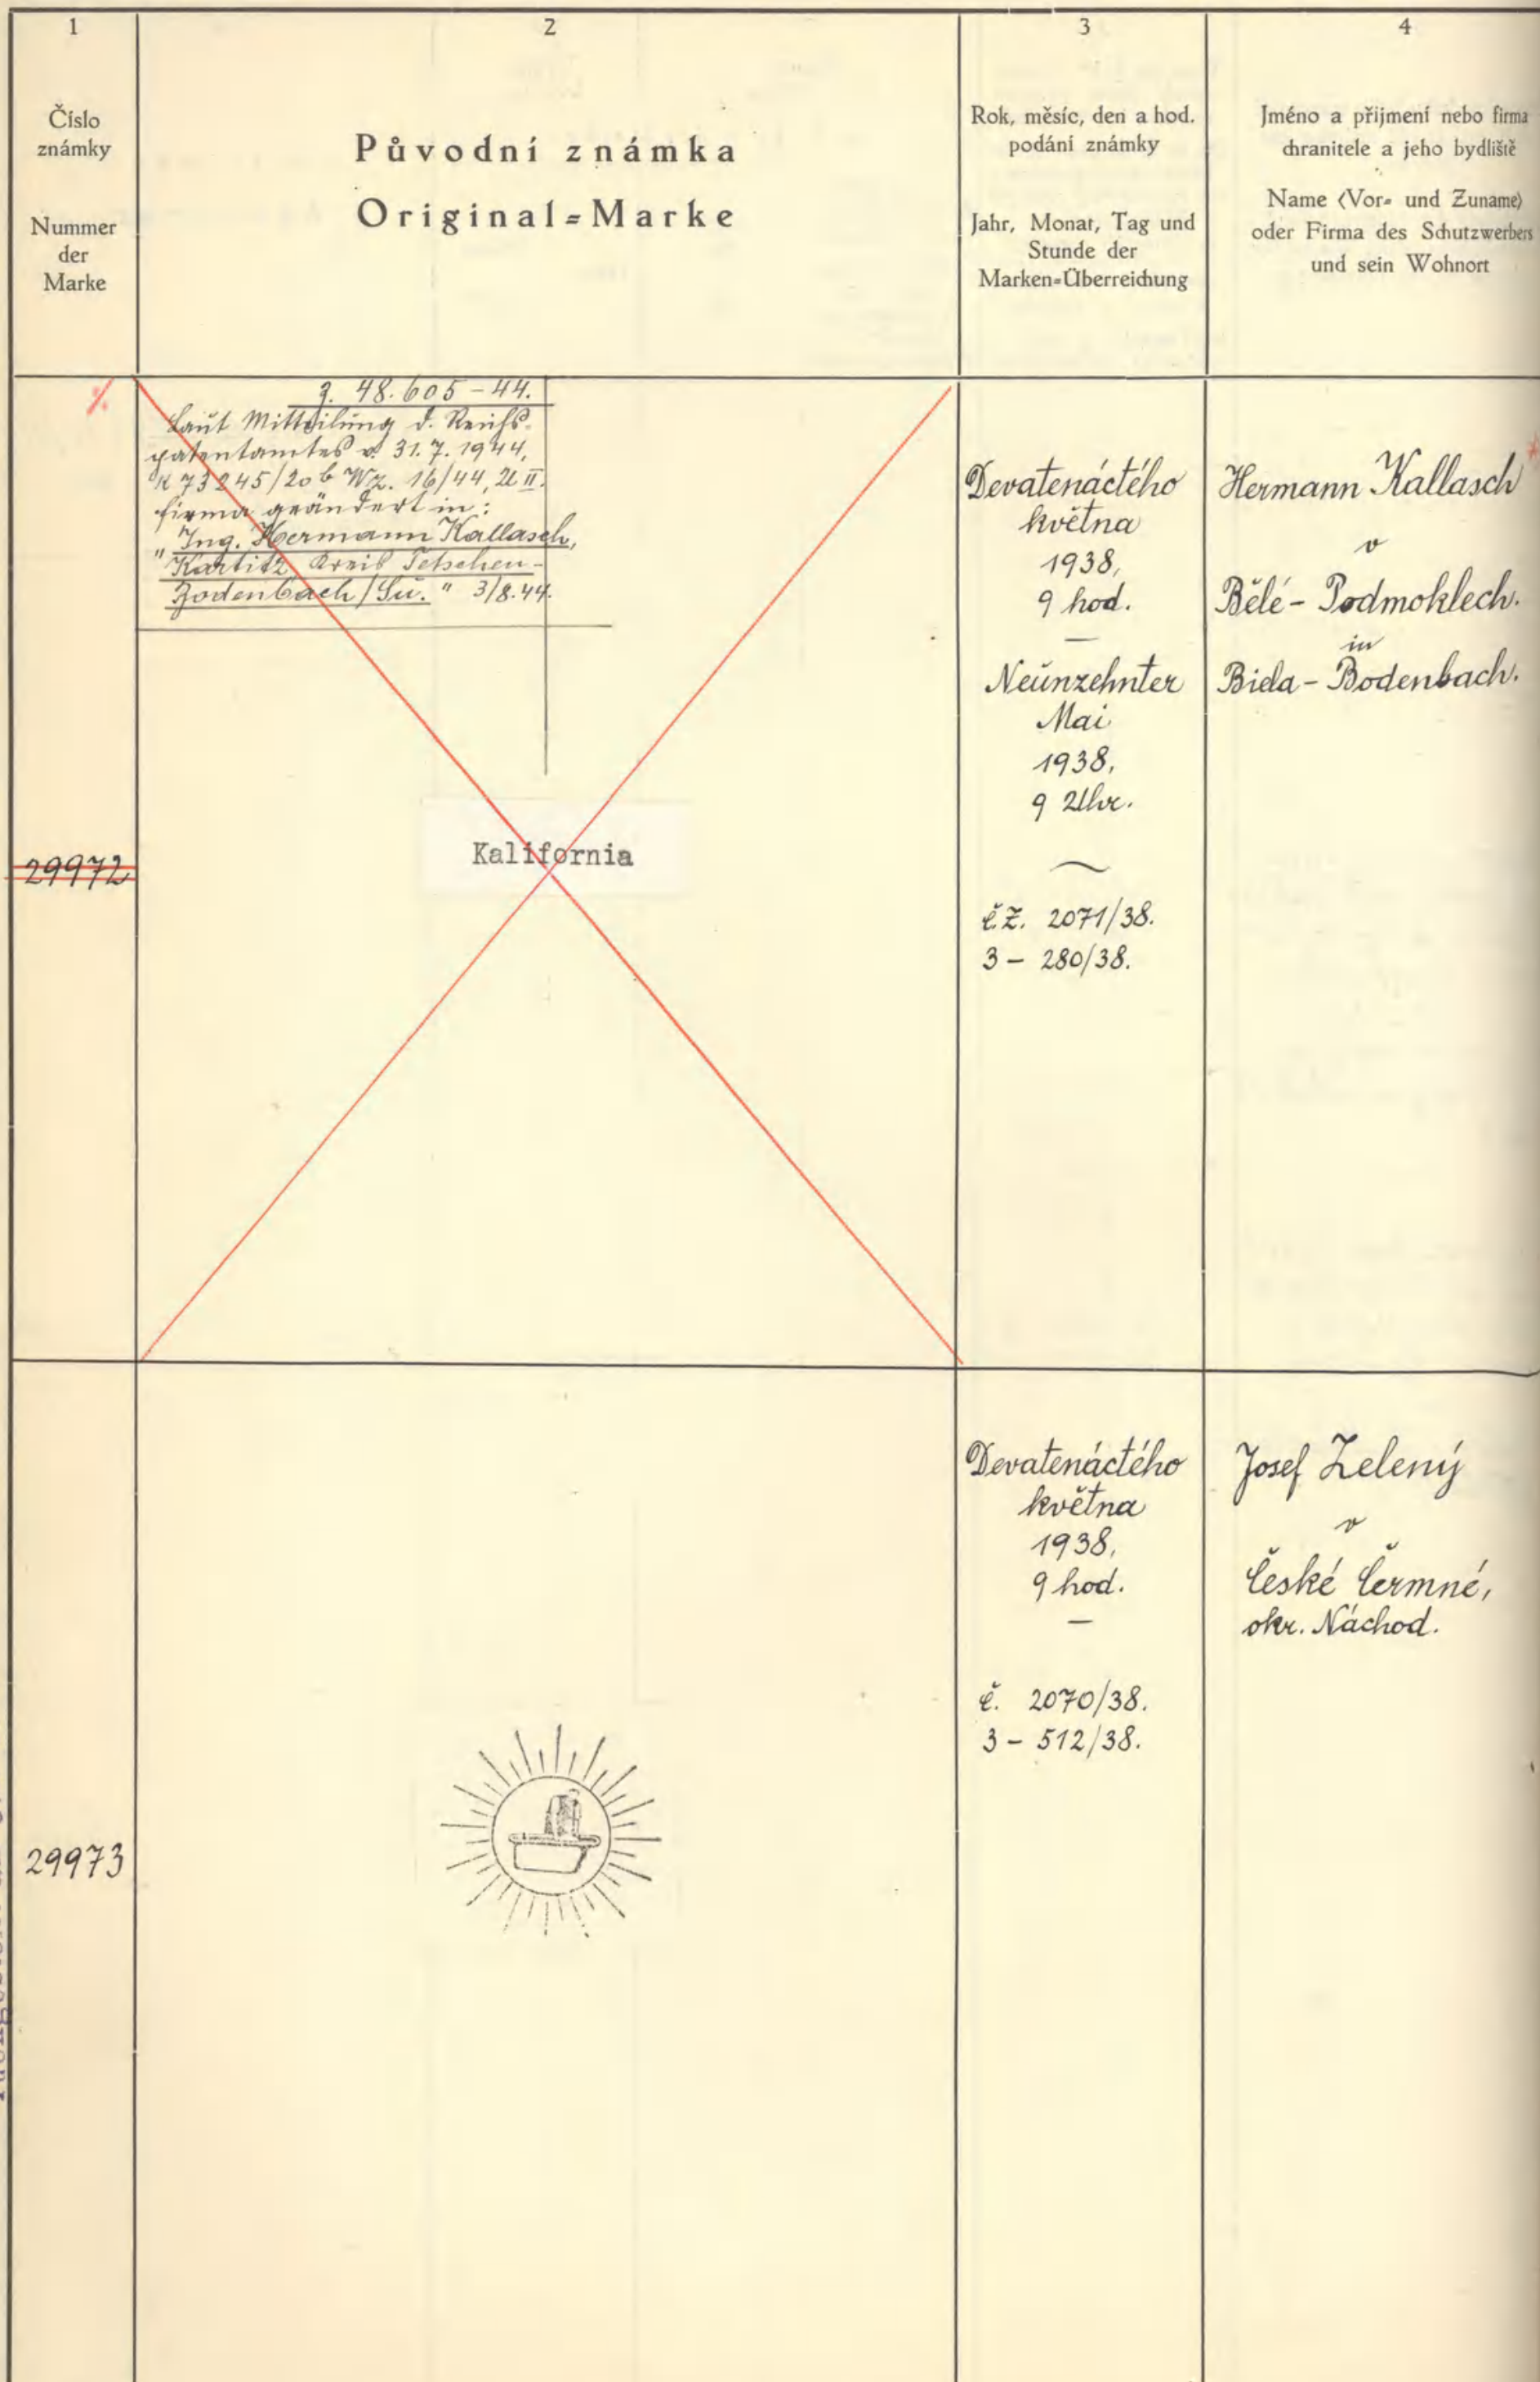 1
Číslo
známky
Nummer
der
Marke
2
Původní známka
Original=Marke
3
Rok, měsíc, den a hod.
podání známky
Jahr, Monat, Tag und
Stunde der
Marken=Überreichung
4
Jméno a přijmení nebo firma
chranitele a jeho bydliště
Name (Vor= und Zuname)
oder Firma des Schutzwerbers
und sein Wohnort
29972
48.605-44.
Laut Mitteilung d. Reichs-
patentamtes v. 31.7.1944,
K 73245/20b Wz. 16/44, II.
firma geändert in:
"Ing. Hermann Kallasch,
Kartitz Kreis Tetschen-
Bodenbach/Su." 3/8.44.
Kalifornia
Devatenáctého
května
1938,
9 hod.
—
Neunzehnter
Mai
1938,
9 Uhr.
č.Z. 2071/38.
3 - 280/38.
Hermann Kallasch
v
Bělé - Podmoklech.
in
Biela - Bodenbach.
29973
Devatenáctého
května
1938,
9 hod.
—
č. 2070/38.
3 - 512/38.
Josef Zelený
v
České Čermné,
okr. Náchod.